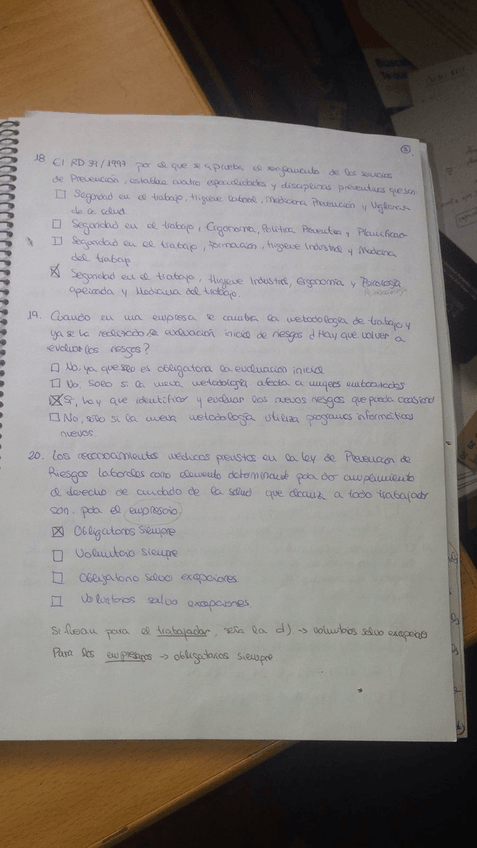 18. El RD 39/1997 por el que se aprueba el reglamento de los servicios
de Prevención, establece cuatro especialidades y disciplinas preventivas que son:
Seguridad en el trabajo, Higiene Laboral, Medicina Prevención y Vigilancia
de la salud.
Seguridad en el trabajo, Ergonomía, Política Preventiva y Planificación
Seguridad en el trabajo, Formación, Higiene Industrial y Medicina
del trabajo
X Seguridad en el trabajo, Higiene Industrial, Ergonomía y Psicología
Aplicada y Medicina del trabajo.
19. Cuando en una empresa se cambia la metodología de trabajo y
ya se ha realizado la evaluación inicial de riesgos ¿Hay que volver a
evaluar los riesgos?
No, ya que solo es obligatoria la evaluación inicial
No, Solo si la nueva metodología afecta a mujeres embarazadas
X Sí, hay que identificar y evaluar los nuevos riesgos que pueda ocasionar
No, sólo si la nueva metodología utiliza programas informáticos
nuevos.
20. Los reconocimientos médicos previstos en la Ley de Prevención de
Riesgos Laborales como elemento determinante para dar cumplimiento
al derecho de cuidado de la salud que alcanza a todo trabajador
son para el empresario:
X Obligatorios siempre
Voluntario siempre
Obligatorio salvo excepciones
Voluntarios salvo excepciones
Si fueran para el trabajador, sería la d) → voluntarios salvo excepciones
Para los empresarios → obligatorios siempre